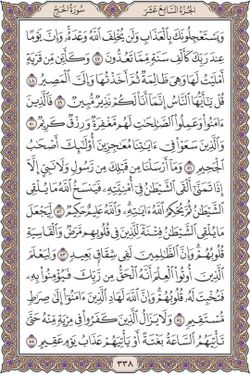 الجُزْءُ السَّابِعَ عَشَرَ سُورَةُ الحَجِّ
وَيَسْتَعْجِلُونَكَ بِالْعَذَابِ وَلَن يُخْلِفَ اللَّهُ وَعْدَهُ وَإِنَّ يَوْمًا
عِندَ رَبِّكَ كَأَلْفِ سَنَةٍ مِّمَّا تَعُدُّونَ ٤٧ وَكَأَيِّن مِّن قَرْيَةٍ
أَمْلَيْتُ لَهَا وَهِيَ ظَالِمَةٌ ثُمَّ أَخَذْتُهَا وَإِلَيَّ الْمَصِيرُ ٤٨
قُلْ يَا أَيُّهَا النَّاسُ إِنَّمَا أَنَا لَكُمْ نَذِيرٌ مُّبِينٌ ٤٩ فَالَّذِينَ
ءَامَنُوا وَعَمِلُوا الصَّالِحَاتِ لَهُم مَّغْفِرَةٌ وَرِزْقٌ كَرِيمٌ ٥٠
وَالَّذِينَ سَعَوْا فِي ءَايَاتِنَا مُعَاجِزِينَ أُولَٰئِكَ أَصْحَابُ
الْجَحِيمِ ٥١ وَمَا أَرْسَلْنَا مِن قَبْلِكَ مِن رَّسُولٍ وَلَا نَبِيٍّ إِلَّا
إِذَا تَمَنَّىٰ أَلْقَى الشَّيْطَانُ فِي أُمْنِيَّتِهِ فَيَنسَخُ اللَّهُ مَا يُلْقِي
الشَّيْطَانُ ثُمَّ يُحْكِمُ اللَّهُ ءَايَاتِهِ وَاللَّهُ عَلِيمٌ حَكِيمٌ ٥٢ لِّيَجْعَلَ
مَا يُلْقِي الشَّيْطَانُ فِتْنَةً لِّلَّذِينَ فِي قُلُوبِهِم مَّرَضٌ وَالْقَاسِيَةِ
قُلُوبُهُمْ وَإِنَّ الظَّالِمِينَ لَفِي شِقَاقٍ بَعِيدٍ ٥٣ وَلِيَعْلَمَ
الَّذِينَ أُوتُوا الْعِلْمَ أَنَّهُ الْحَقُّ مِن رَّبِّكَ فَيُؤْمِنُوا بِهِ
فَتُخْبِتَ لَهُ قُلُوبُهُمْ وَإِنَّ اللَّهَ لَهَادِ الَّذِينَ ءَامَنُوا إِلَىٰ صِرَاطٍ
مُّسْتَقِيمٍ ٥٤ وَلَا يَزَالُ الَّذِينَ كَفَرُوا فِي مِرْيَةٍ مِّنْهُ حَتَّىٰ
تَأْتِيَهُمُ السَّاعَةُ بَغْتَةً أَوْ يَأْتِيَهُمْ عَذَابُ يَوْمٍ عَقِيمٍ ٥٥
٣٣٨